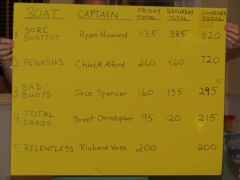 BOAT CAPTAIN FRIDAY TOTAL SATURDAY TOTAL COMBINED TOTAL
1. SORE SUBJECT Ryan Howard 435 385 820
2. PEGASUS Chuck Alford 260 460 720
3. BAD BUOYS Jace Spencer 160 135 295
4. TOTAL CHAOS Brent Christopher 95 120 215
5. RELENTLESS Richard Voss 200 200